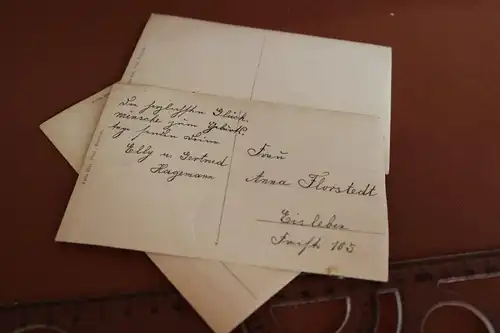 Die herzlichsten Glück
wünsche zum Geburts
tage senden deine
Elly u. Gertrud
Hagemann
Frau
Anna Florstedt
Eisleben
105